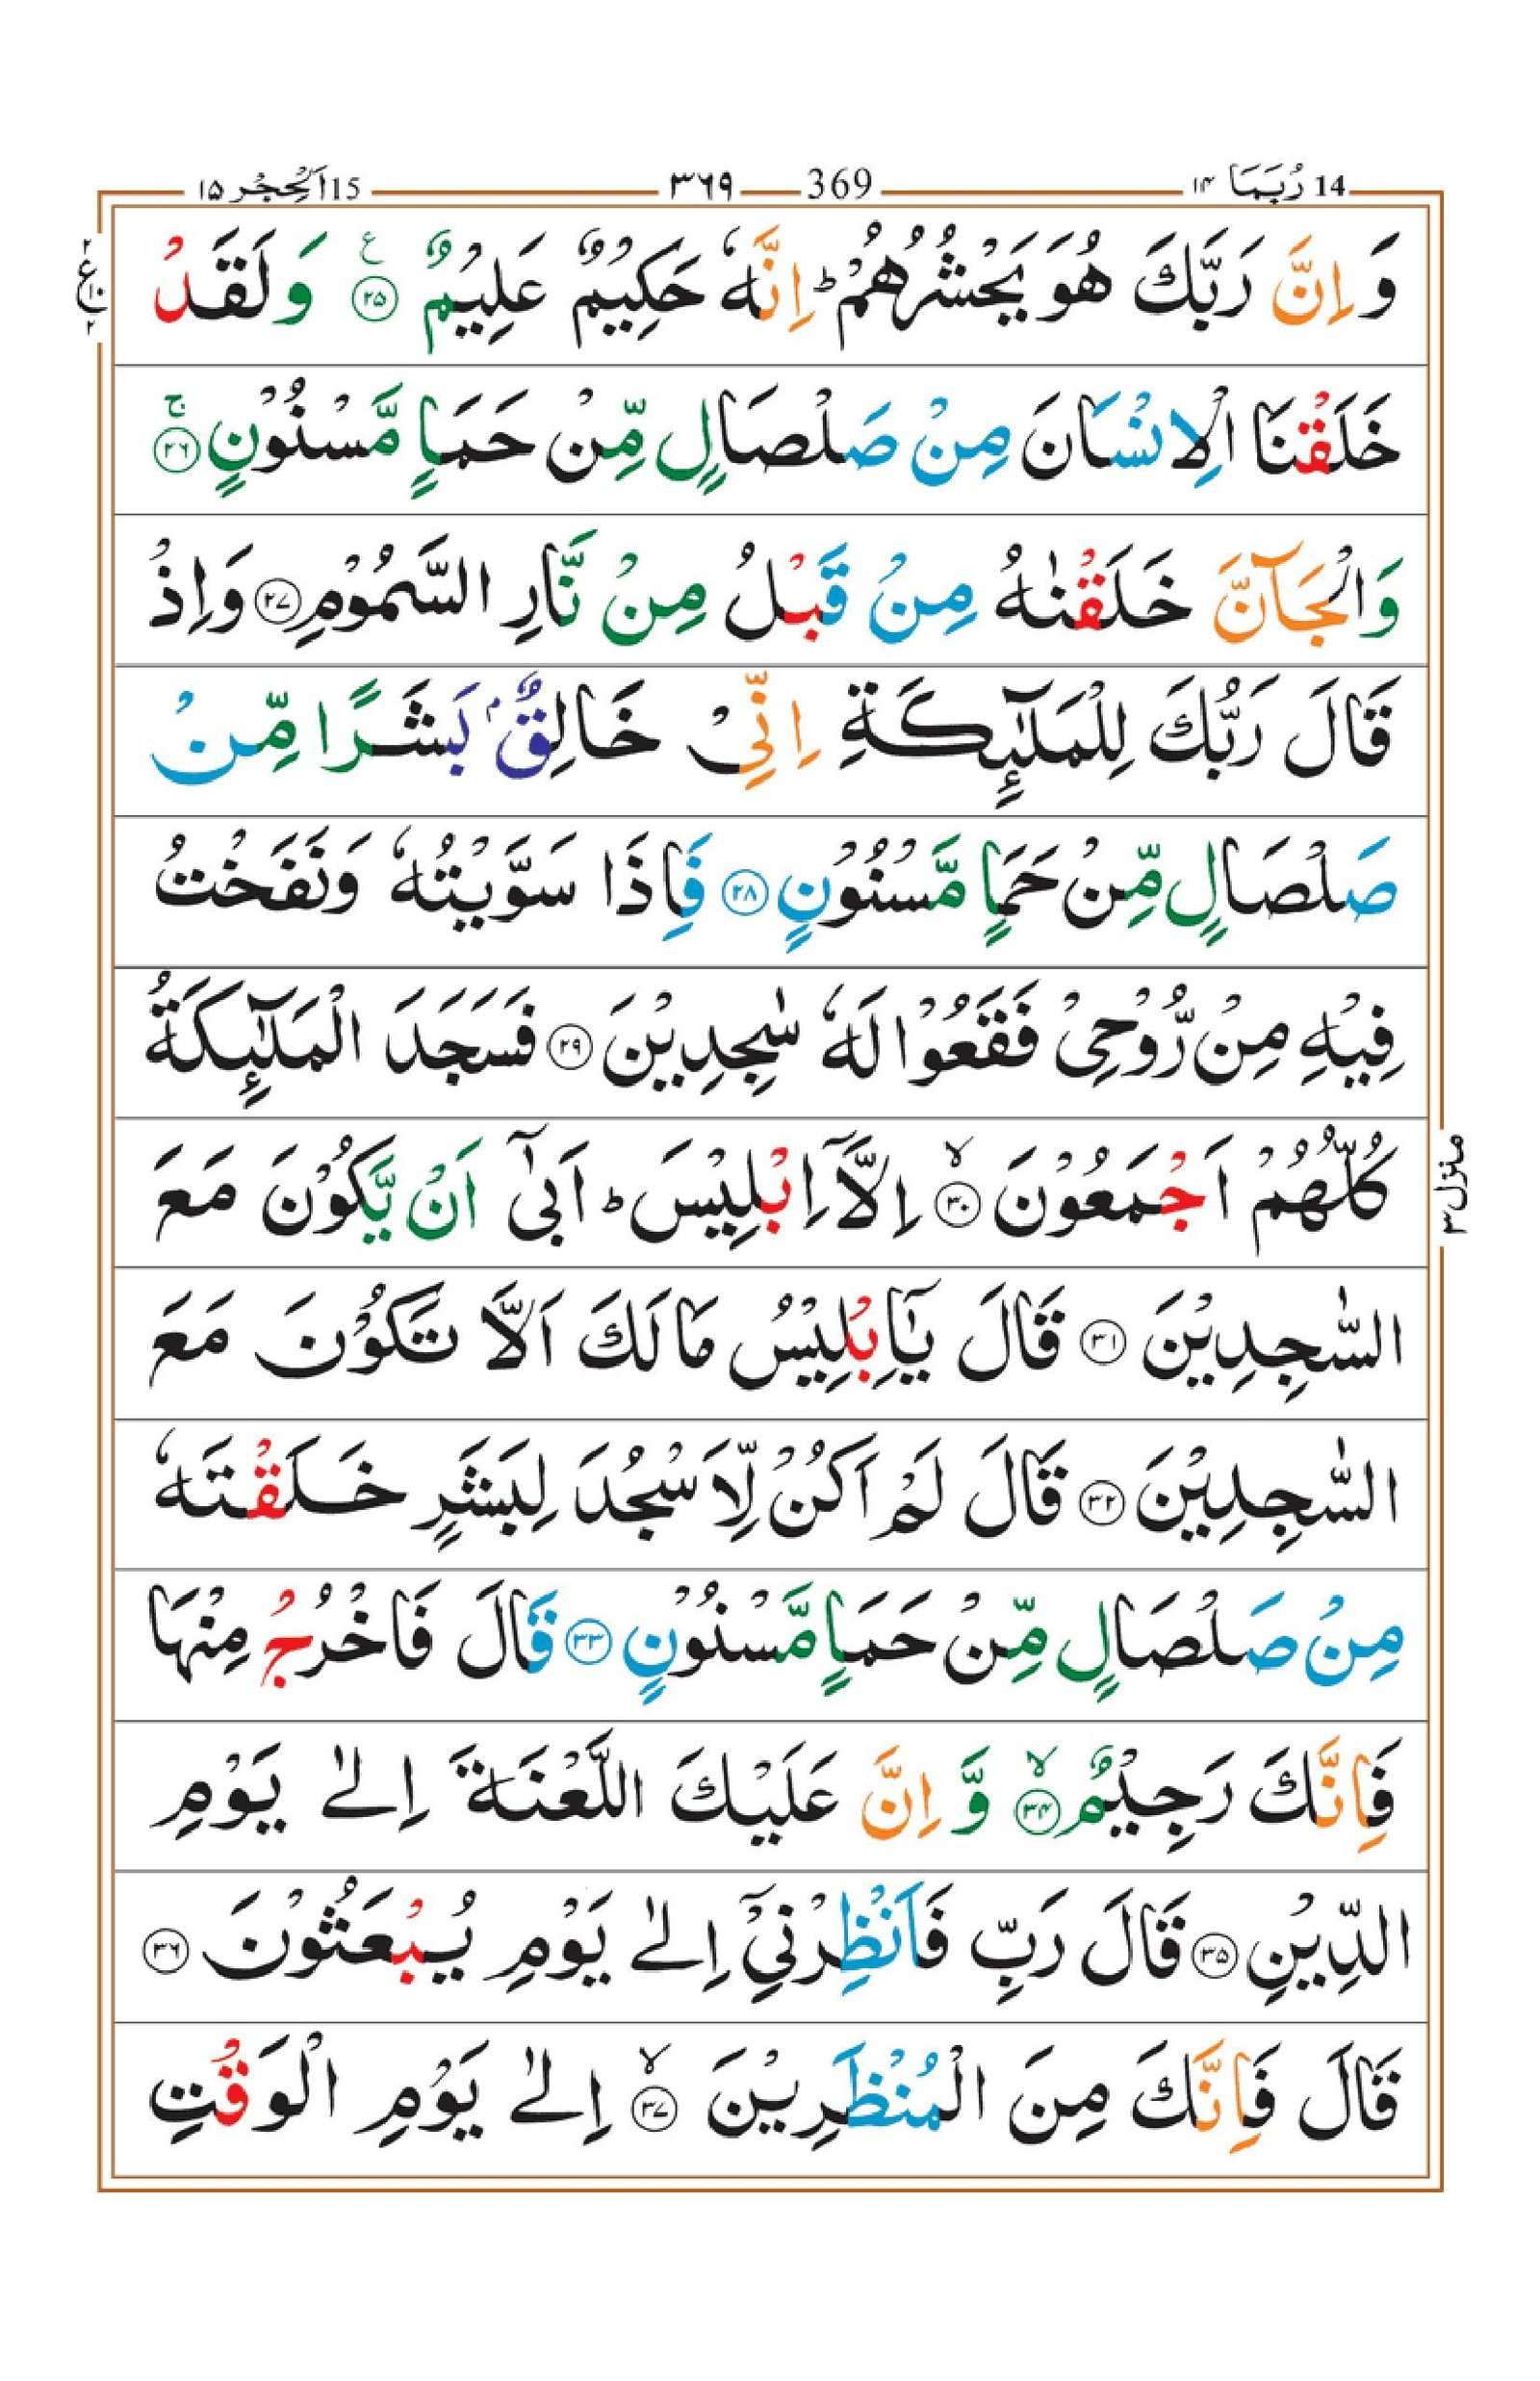 14 رُبَمَا ١٤ 369 ٣٦٩ 15 اَلْحِجْر ١٥
وَ اِنَّ رَبَّكَ هُوَ يَحْشُرُهُمْ ؕ اِنَّهٗ حَكِيْمٌ عَلِيْمٌ ۧ ۲۵ وَ لَقَدْ
خَلَقْنَا الْاِنْسَانَ مِنْ صَلْصَالٍ مِّنْ حَمَاٍ مَّسْنُوْنٍ ۚ ۲۶
وَالْجَآنَّ خَلَقْنٰهُ مِنْ قَبْلُ مِنْ نَّارِ السَّمُوْمِ ۲۷ وَاِذْ
قَالَ رَبُّكَ لِلْمَلٰٓئِكَةِ اِنِّىْ خَالِقٌۢ بَشَرًا مِّنْ
صَلْصَالٍ مِّنْ حَمَاٍ مَّسْنُوْنٍ ۲۸ فَاِذَا سَوَّيْتُهٗ وَنَفَخْتُ
فِيْهِ مِنْ رُّوْحِىْ فَقَعُوْا لَهٗ سٰجِدِيْنَ ۲۹ فَسَجَدَ الْمَلٰٓئِكَةُ
كُلُّهُمْ اَجْمَعُوْنَ ۙ ۳۰ اِلَّاۤ اِبْلِيْسَ ؕ اَبٰٓى اَنْ يَّكُوْنَ مَعَ
السّٰجِدِيْنَ ۳۱ قَالَ يٰۤاِبْلِيْسُ مَا لَكَ اَلَّا تَكُوْنَ مَعَ
السّٰجِدِيْنَ ۳۲ قَالَ لَمْ اَكُنْ لِّاَسْجُدَ لِبَشَرٍ خَلَقْتَهٗ
مِنْ صَلْصَالٍ مِّنْ حَمَاٍ مَّسْنُوْنٍ ۳۳ قَالَ فَاخْرُجْ مِنْهَا
فَاِنَّكَ رَجِيْمٌ ۙ ۳۴ وَّ اِنَّ عَلَيْكَ اللَّعْنَةَ اِلٰى يَوْمِ
الدِّيْنِ ۳۵ قَالَ رَبِّ فَاَنْظِرْنِىْۤ اِلٰى يَوْمِ يُبْعَثُوْنَ ۳۶
قَالَ فَاِنَّكَ مِنَ الْمُنْظَرِيْنَ ۙ ۳۷ اِلٰى يَوْمِ الْوَقْتِ
۲ ع ۱۰ ۲
منزل ۳